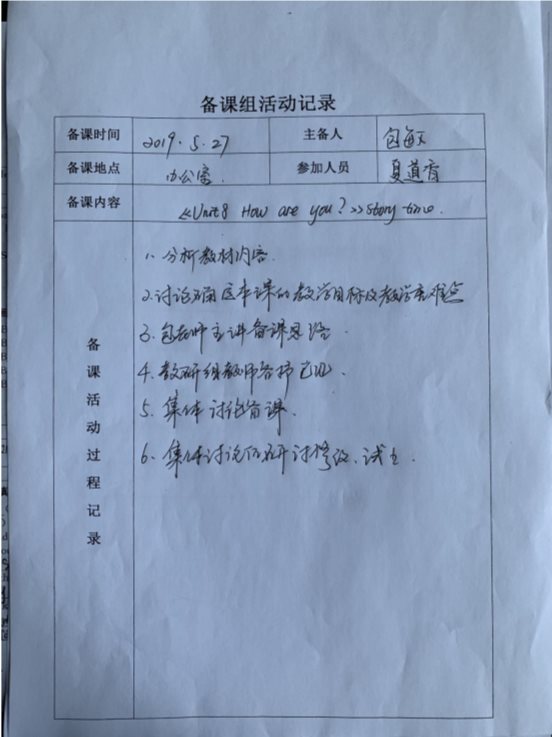 备课组活动记录
备课时间 2019.5.27 主备人 包
备课地点 办公室. 参加人员 夏道香
备课内容 《Unit 8 How are you?》Story time.
备课活动过程记录
1. 分析教材内容.
2. 讨论确定本课的教学目标及教学重难点
3. 包老师主讲备课思路.
4. 教研组教师各抒己见.
5. 集体讨论备课.
6. 集体讨论后研讨修改、试上.